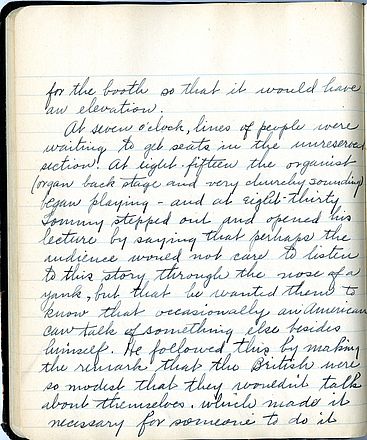 for the booth so that it would have
an elevation.
At seven o'clock, lines of people were
waiting to get seats in the unreserved
section. At eight fifteen the organist
(organ back stage and very churchly sounding)
began playing - and at eight-thirty
Tommy stepped out and opened his
lecture by saying that perhaps the
audience would not care to listen
to this story through the nose of a
yank, but that he wanted them to
know that occasionally an American
can talk of something else besides
himself. He followed this by making
the remark that the British were
so modest that they wouldn't talk
about themselves. which made it
necessary for someone to do it